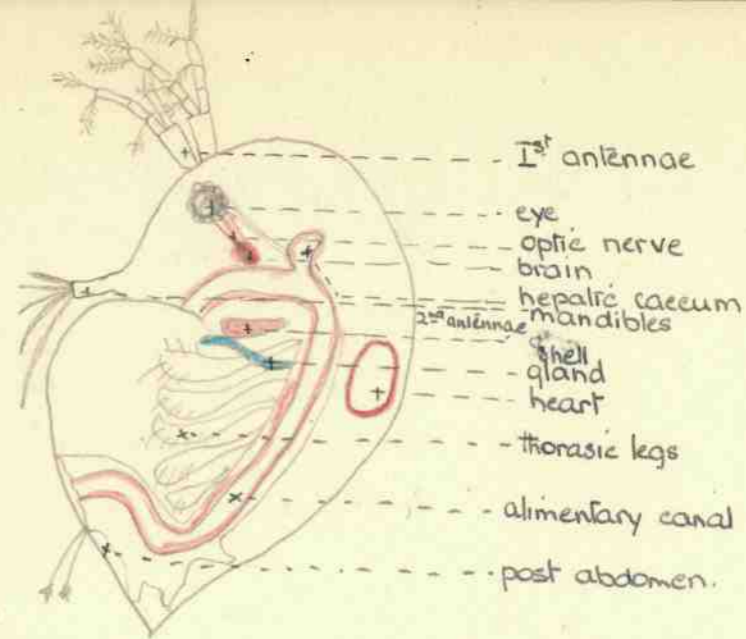 Ist antennae
eye
optic nerve
brain
hepatic caecum
2nd antennae mandibles
shell
gland
heart
thorasic legs
alimentary canal
post abdomen.